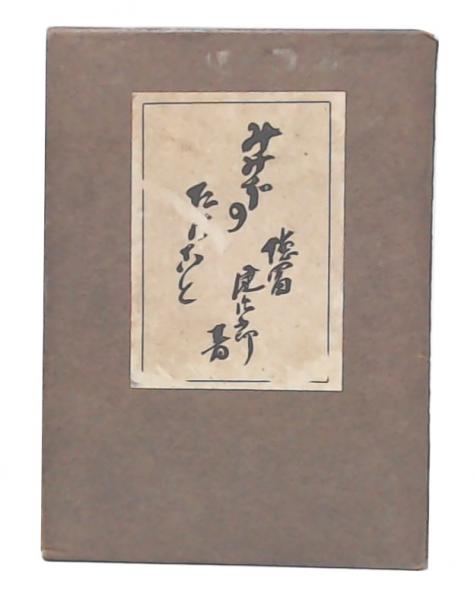 みみずの
たはこと
徳冨
健次郎
著